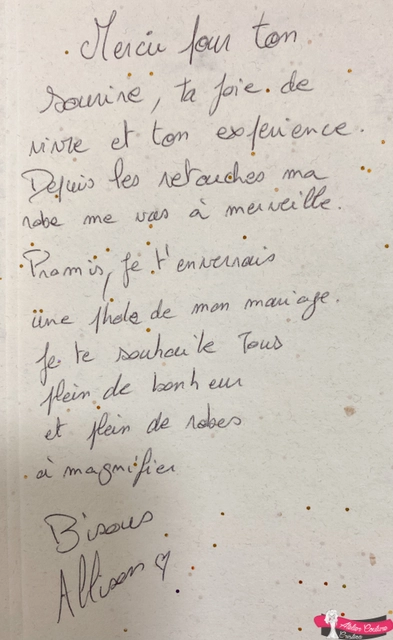 Merci pour ton
sourire, ta joie de
vivre et ton experience.
Depuis les retouches ma
robe me vas à merveille.
Promis, je t'enverrais
une photo de mon mariage.
Je te souhaite Tous
plein de bonheur
et plein de robes
à magnifier
Bisous
Allison ♡
Atelier Couture